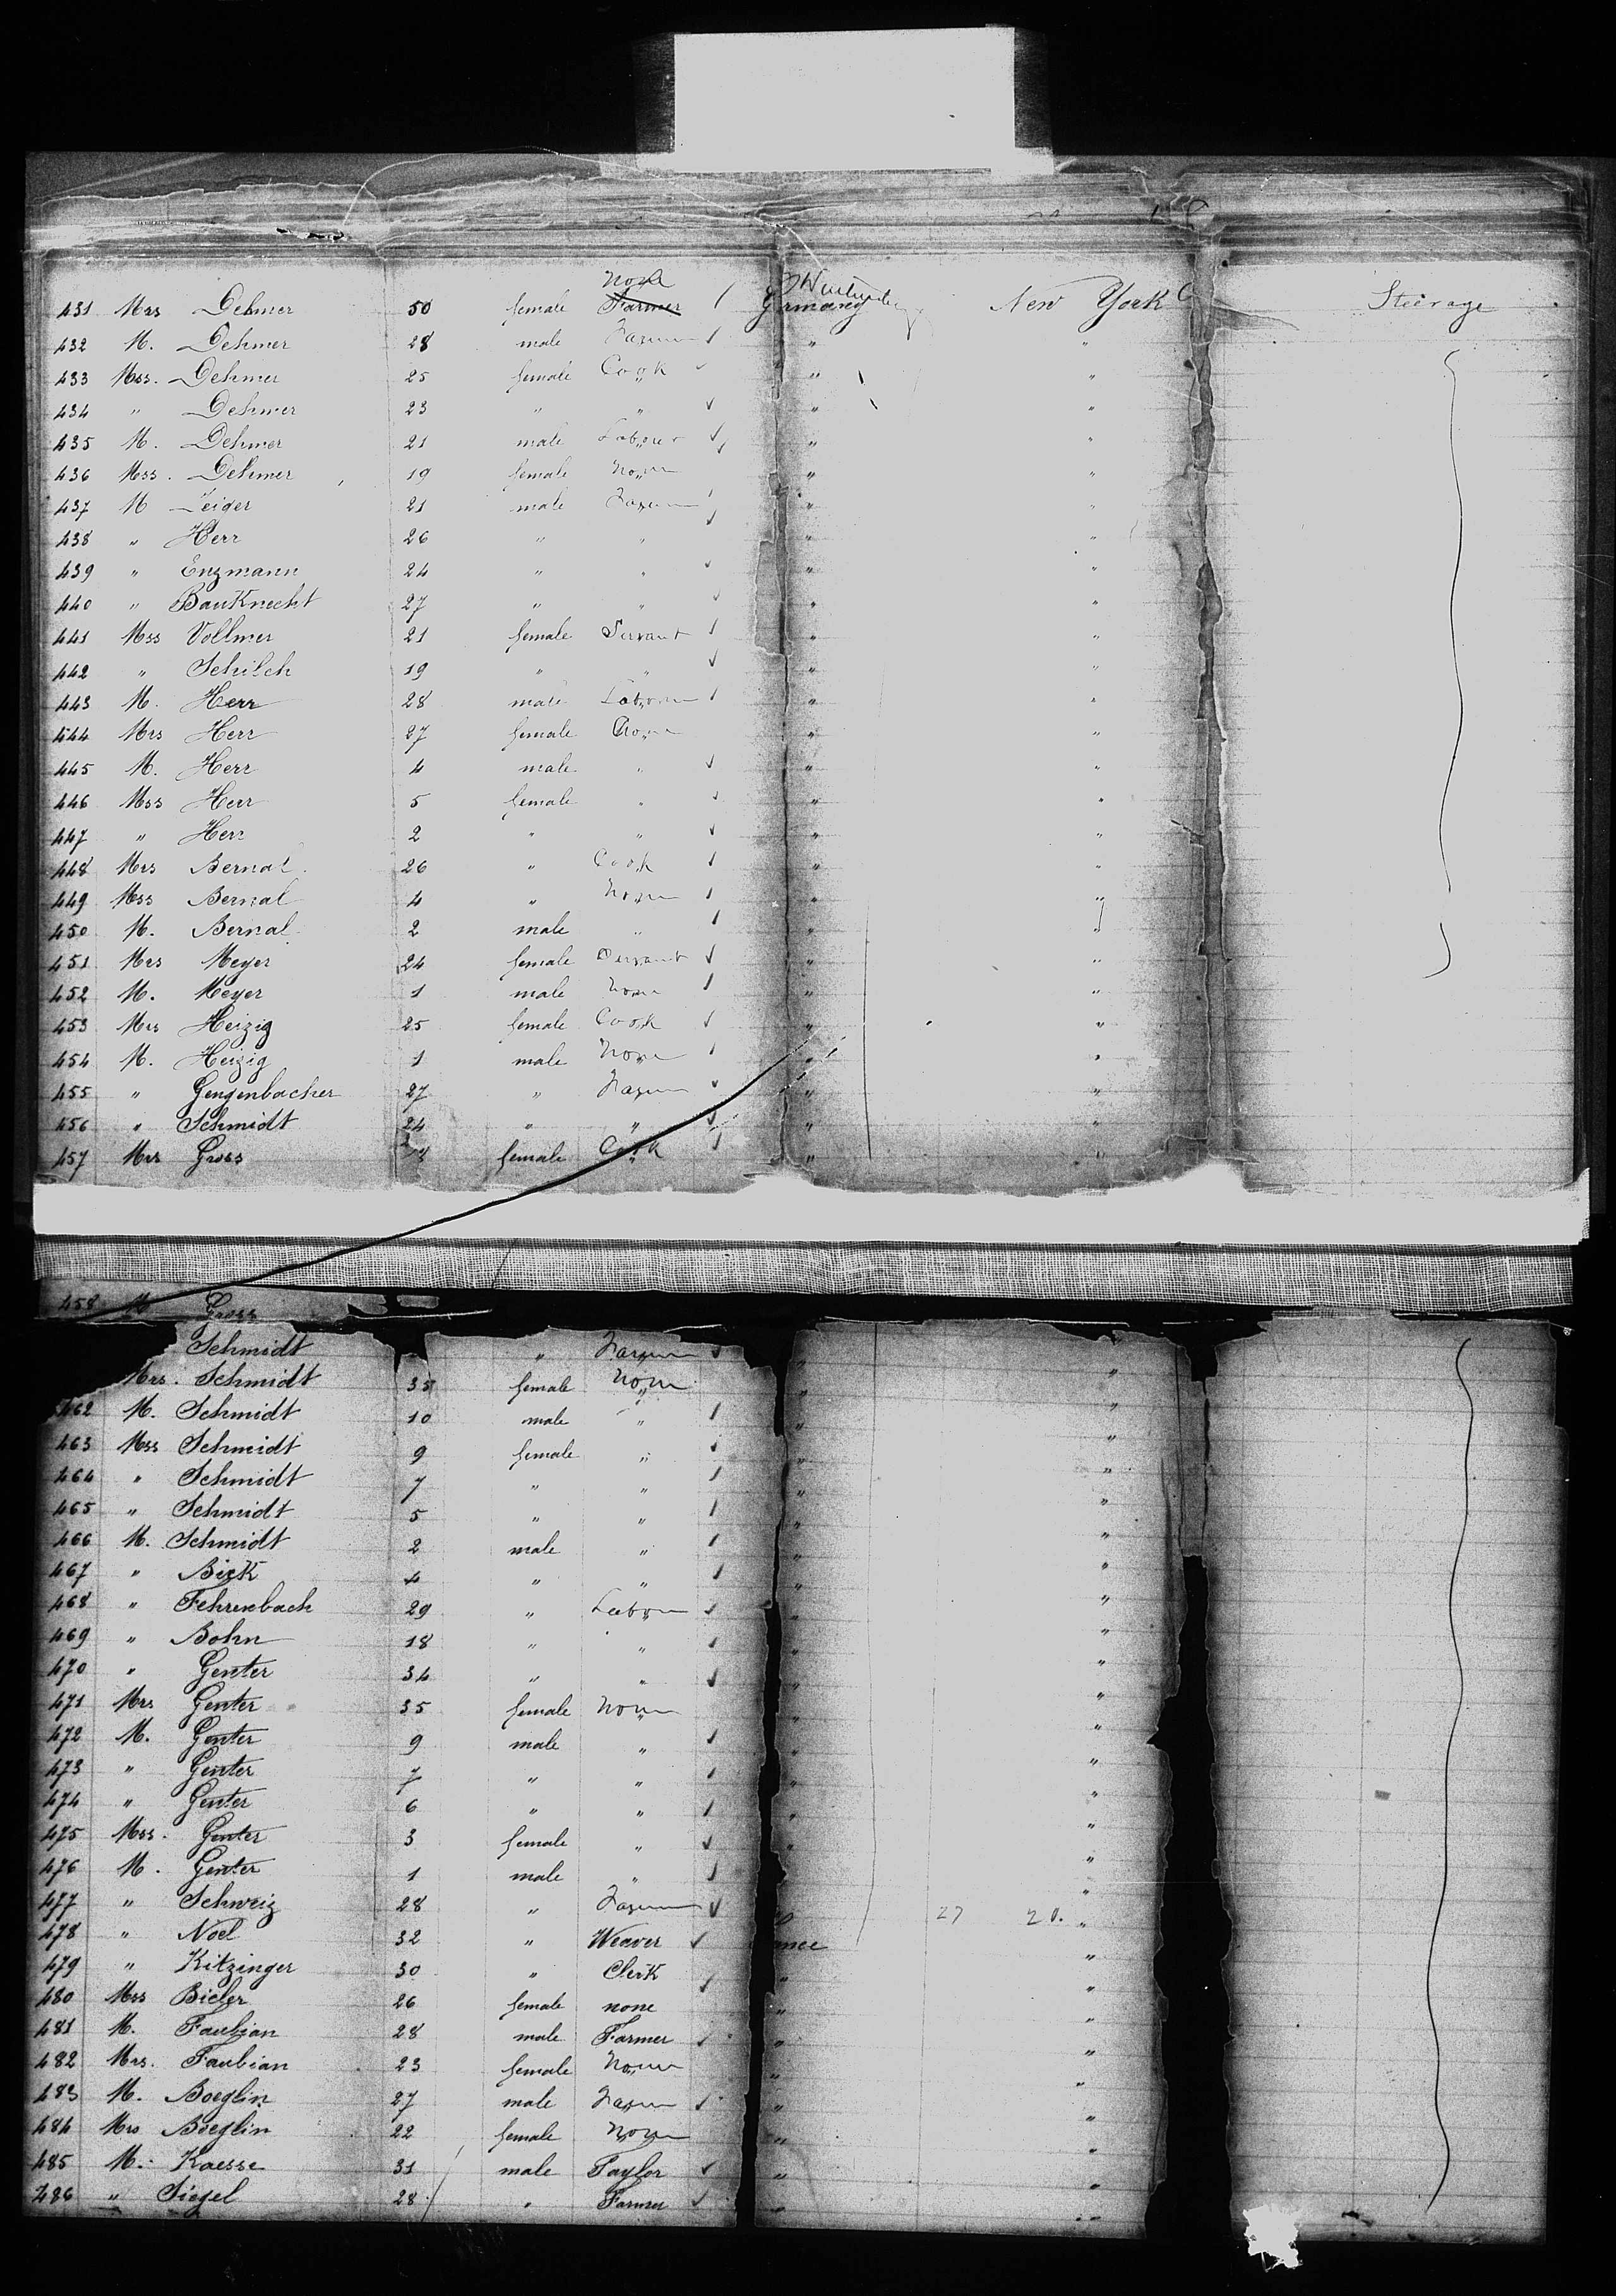 none
431 Mrs Dehmer 50 female Farmer Germany New York Steerage
432 M. Dehmer 28 male Farmer " "
433 Mss. Dehmer 25 female Cook " "
434 " Dehmer 23 " " " "
435 M. Dehmer 21 male Laborer " "
436 Mss. Dehmer 19 female None " "
437 M Zeiger 21 male Farmer " "
438 " Herr 26 " " "
439 " Enzmann 24 " " " "
440 " BauKnecht 27 " " " "
441 Mss Vollmer 21 female Servant " "
442 " Schilch 19 " " " "
443 M. Herr 28 male Laborer " "
444 Mrs Herr 27 female None " "
445 M. Herr 4 male " " "
446 Mss Herr 5 female " " "
447 " Herr 2 " " " "
448 Mrs Bernal 26 " Cook " "
449 Mss Bernal 4 " None " "
450 M. Bernal 2 male " " "
451 Mrs Meyer 24 female Servant " "
452 M. Meyer 1 male None " "
453 Mrs Heizig 25 female Cook " "
454 M. Heizig 1 male None " "
455 " Gengenbacher 27 " Farmer " "
456 " Schmidt 24 " " " "
457 Mrs Gross female Cook " "
458 M Gross
Schmidt " Farmer " "
Mrs. Schmidt 35 female None " "
462 M. Schmidt 10 male " " "
463 Mss Schmidt 9 female " " "
464 " Schmidt 7 " " " "
465 " Schmidt 5 " " " "
466 M. Schmidt 2 male " " "
467 " Bick 4 " " " "
468 " Fehrenbach 29 " Labor " "
469 " Bohn 18 " " " "
470 " Genter 34 " " " "
471 Mrs Genter 35 female None " "
472 M. Genter 9 male " " "
473 " Genter 7 " " " "
474 " Genter 6 " " " "
475 Mss. Genter 3 female " " "
476 M. Genter 1 male " " "
477 " Schweiz 28 " Farmer 27 21. "
478 " Noel 32 " Weaver nce "
479 " Kitzinger 30 " Clerk " "
480 Mss Bieler 26 female none " "
481 M. Faubian 28 male Farmer " "
482 Mrs. Faubian 23 female None " "
483 M. Boeglin 27 male Farmer " "
484 Mrs Boeglin 22 female None " "
485 M. Kaesse 31 male Taylor " "
486 " Siegel 28 " Farmer " "